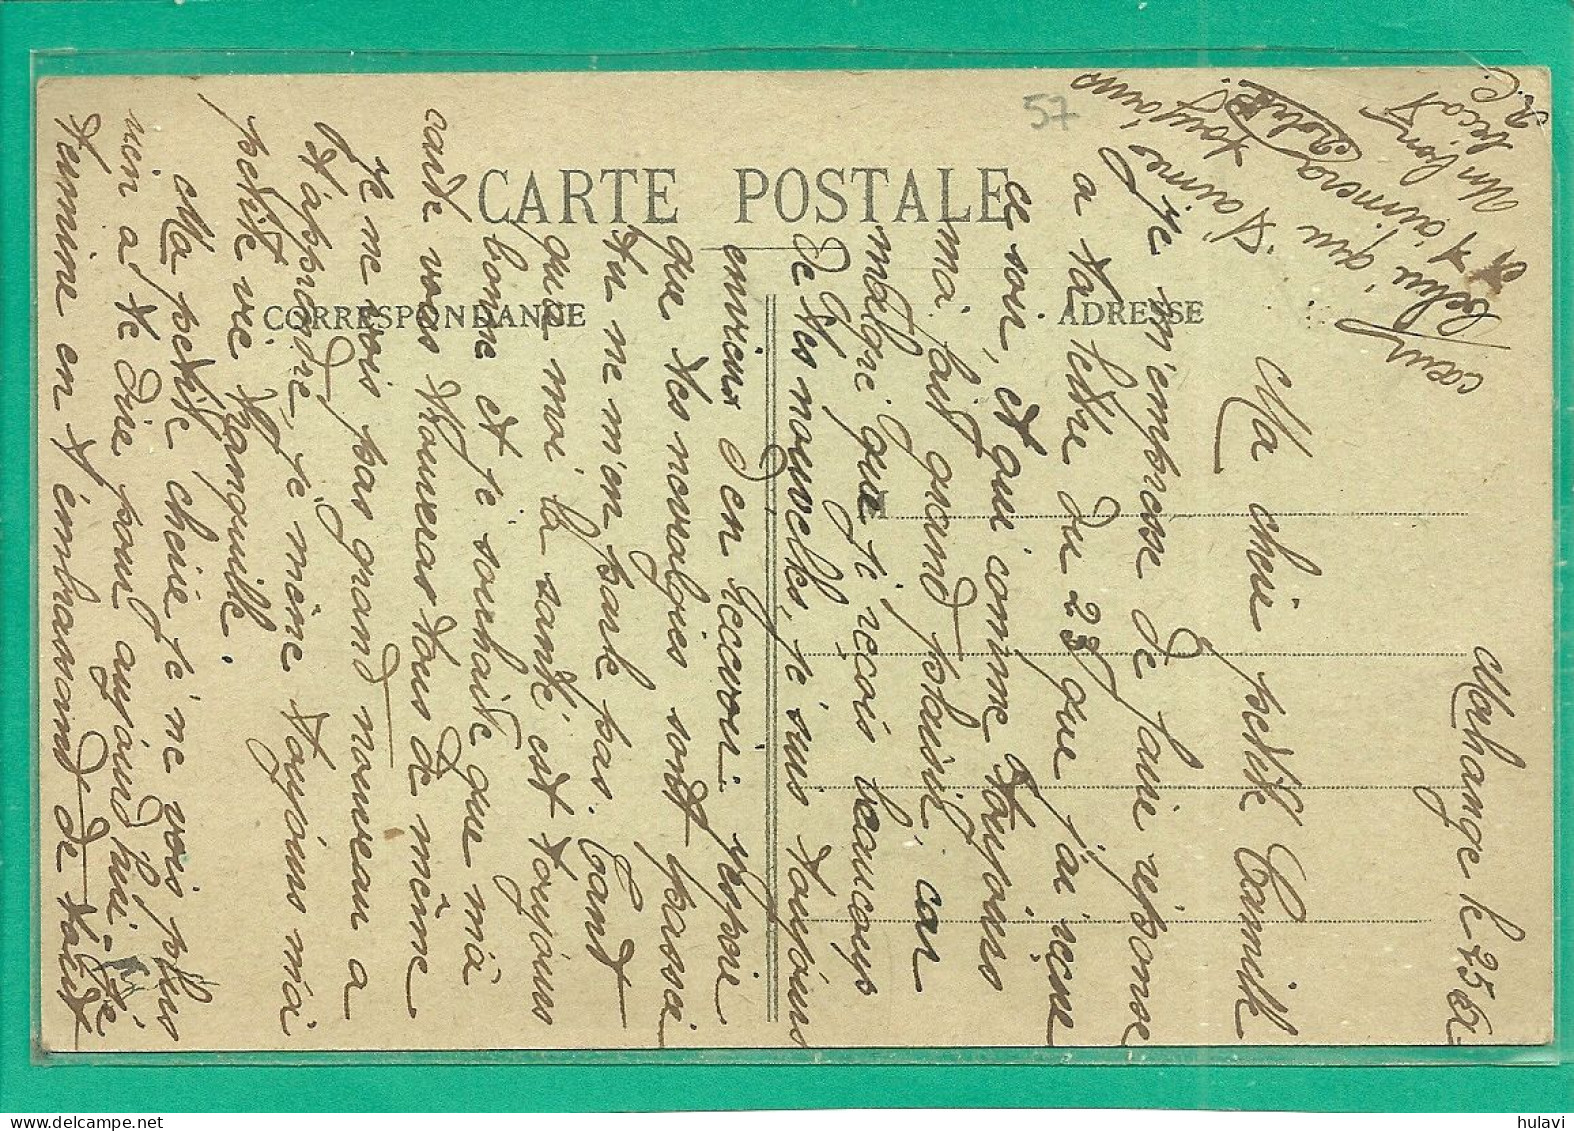 CARTE POSTALE
CORRESPONDANCE
ADRESSE
57
Morhange le 25
Ma chère petite Camille
Je m'empresse de faire réponse
a ta lettre du 23 que j'ai reçue
ce soir, et qui comme toujours
m'a fait grand plaisir, car
malgré que je reçois beaucoup
de tes nouvelles, je suis toujours
envieux d'en recevoir. J'espère
que tes nevralgies sont passées
tu ne m'en parle pas. Tant
qu'a moi la santé est toujours
bonne et je souhaite que ma
carte vous trouveras tous de même
Je ne vois pas grand nouveau a
t'apprendre, je mène toujours ma
petite vie tranquille.
Ma petite cherie je ne vois plus
rien a te dire pour aujourd'hui. Je
termine en t'embrassant de tout
cœur
Celui qui t'aime
et t'aimera toujours
Un bon bécot
R.C.
hulavi